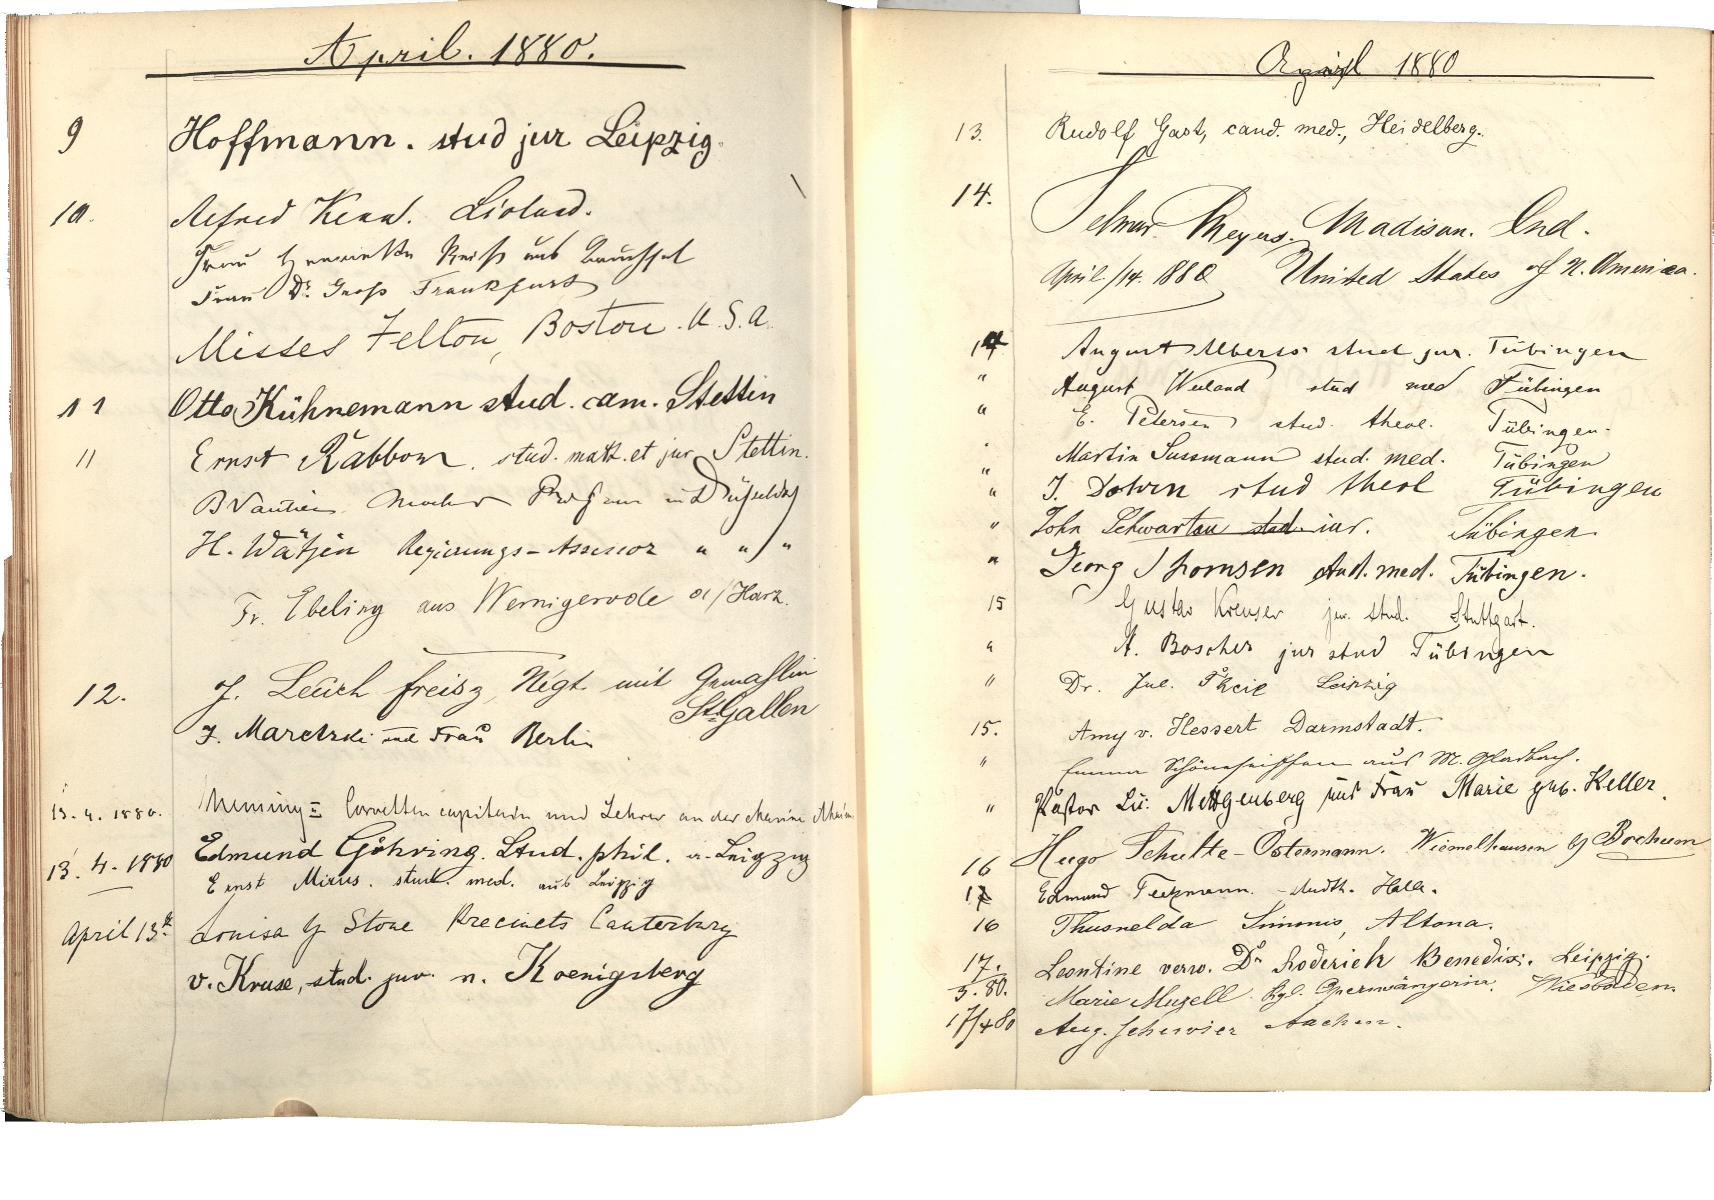 April. 1880.
9 Hoffmann. stud jur Leipzig.
10. Alfred Livland.
Frau Reiß aus Bruchsal
Frau Dr. Groß Frankfurt
Misses Felton, Boston. U.S.A.
11 Otto Kühnemann stud. cam. Stettin
11 Ernst Rabbow. stud. math. et jur Stettin.
B Vautier Düsseldorf
H. Wätjen Regierungs-Assessor " " "
Fr. Ebeling aus Wernigerode a/Harz.
12. J. mit Gemahlin
St. Gallen
J. Maretzki und Frau Berlin
13. 4. 1880. Corvetten capitain und Lehrer an der Marine
13. 4. 1880 Edmund Göhring. Stud. phil. a. Leipzig
Ernst Mirus. stud. med. aus Leipzig
April 13th Louisa G Stone Precincts Canterbury
v. Kruse, stud. jur. n. Koenigsberg
April 1880
13. Rudolf Gast, cand. med., Heidelberg.
14. Selmar Madison. Ind.
April /14. 1880 United States of N. America.
14 August Alberts stud jur. Tübingen
" August Weiland stud med Tübingen
" E. Petersen stud. theol. Tübingen.
" Martin Sussmann stud. med. Tübingen
" J. stud theol Tübingen
" John Schwartau stud. iur. Tübingen.
" Georg Thomsen stud. med. Tübingen.
15 Gustav Kreuser jur. stud. Stuttgart.
" A. Boscher jur stud Tübingen
" Dr. Jul. Leipzig
15. Amy v. Hessert Darmstadt.
" Emma aus M. Gladbach.
" Pastor Lic. Mettgenberg und Frau Marie geb. Keller.
16 Hugo Schulte-Ostermann. Wiemelhausen b/ Bochum
17 Edmund Halle.
16 Thusnelda Simonis, Altona.
17. Leontine verw. Dr. Roderich Benedix. Leipzig.
3. 80. Marie Muzell Kgl. Opernsängerin. Wiesbaden.
17/4 80 Aug. Schervier Aachen.